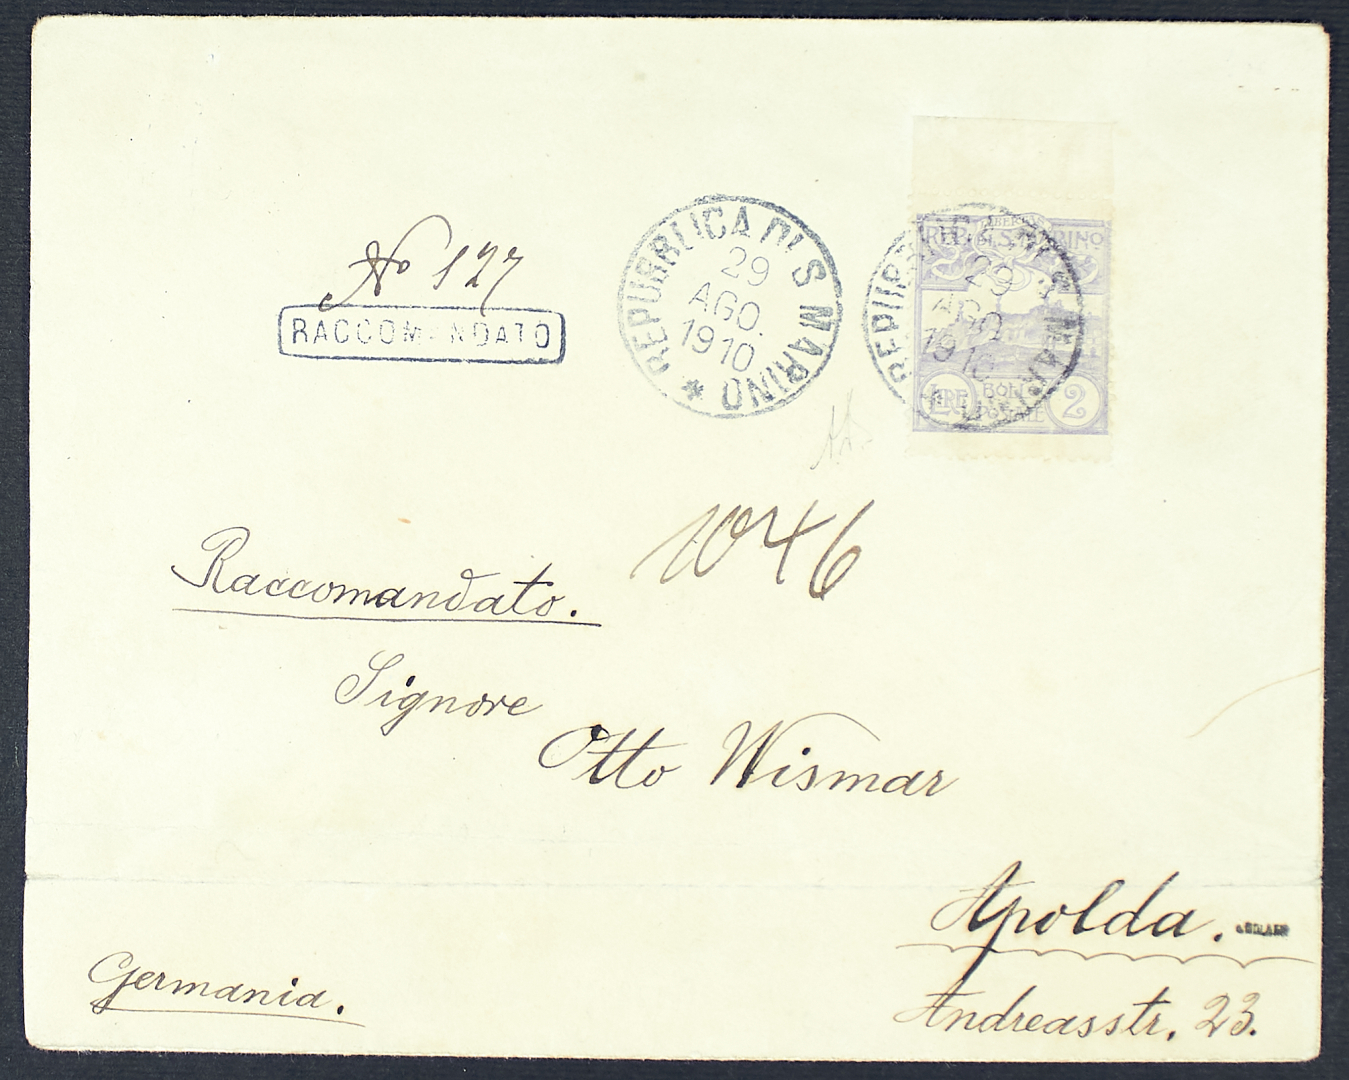 No 127
RACCOMANDATO
REPUBBLICA DI S. MARINO
29
AGO.
1910
REPUBBLICA DI S. MARINO
29
AGO.
1910
LIBERTAS
REP. DI S. MARINO
LIRE BOLLO POSTALE 2
Raccomandato.
Signore
Otto Wismar
Apolda.
Andreasstr. 23.
Germania.